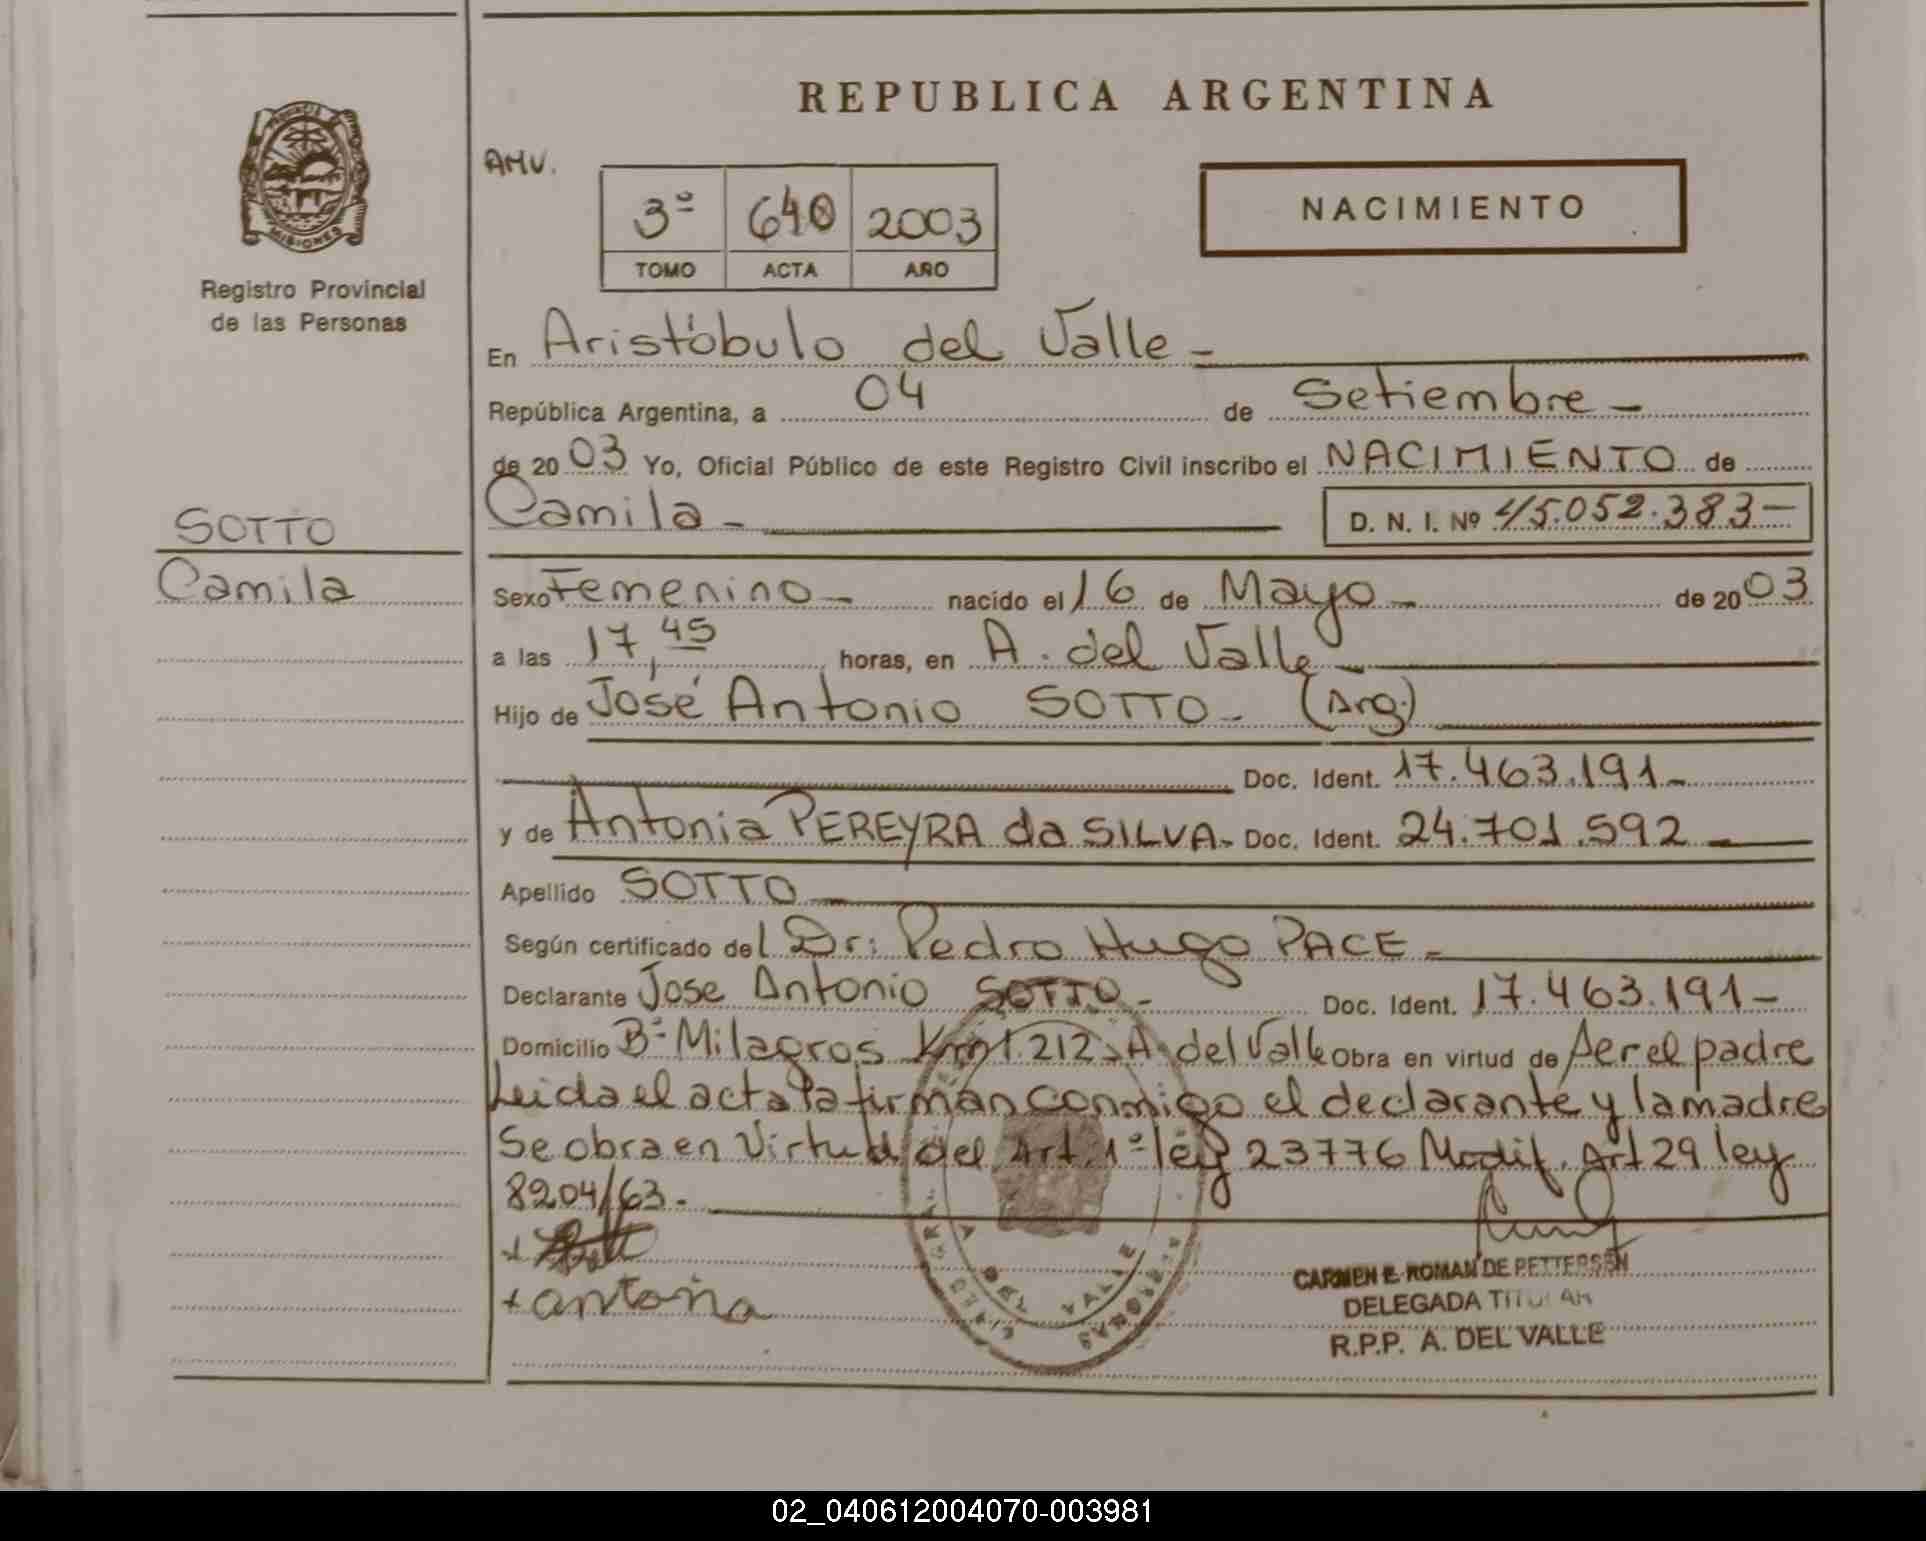 REPUBLICA ARGENTINA
PROVINCIA
MISIONES
Registro Provincial
de las Personas
AMV.
3º 640 2003
TOMO ACTA AÑO
NACIMIENTO
En Aristóbulo del Valle -
República Argentina, a 04 de Setiembre -
de 2003 Yo, Oficial Público de este Registro Civil inscribo el NACIMIENTO de
Camila - D. N. I. Nº 45.052.383 -
SOTTO
Camila
Sexo Femenino - nacido el 16 de Mayo - de 2003
a las 17,45 horas, en A. del Valle -
Hijo de José Antonio SOTTO - (Arg)
Doc. Ident. 17.463.191 -
y de Antonia PEREYRA da SILVA - Doc. Ident. 24.701.592 -
Apellido SOTTO
Según certificado del Dr: Pedro Hugo PACE -
Declarante Jose Antonio SOTTO - Doc. Ident. 17.463.191 -
Domicilio Bº Milagros Km 1.212 - A. del Valle Obra en virtud de ser el padre
Leida el acta la firman conmigo el declarante y la madre
Se obra en Virtud del Art. 1º ley 23776 Modif. Art 29 ley
8204/63. -
+ antonia
A. DEL VALLE
PERSONAS
CARMEN E. ROMAN DE PETTERSEN
DELEGADA TITULAR
R.P.P. A. DEL VALLE
02_040612004070-003981